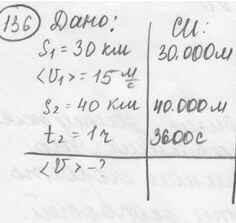 136 Дано: СИ:
S₁ = 30 км 30.000м
<V₁> = 15 м/с
S₂ = 40 км 40.000м
t₂ = 1ч 3600с
<V> - ?